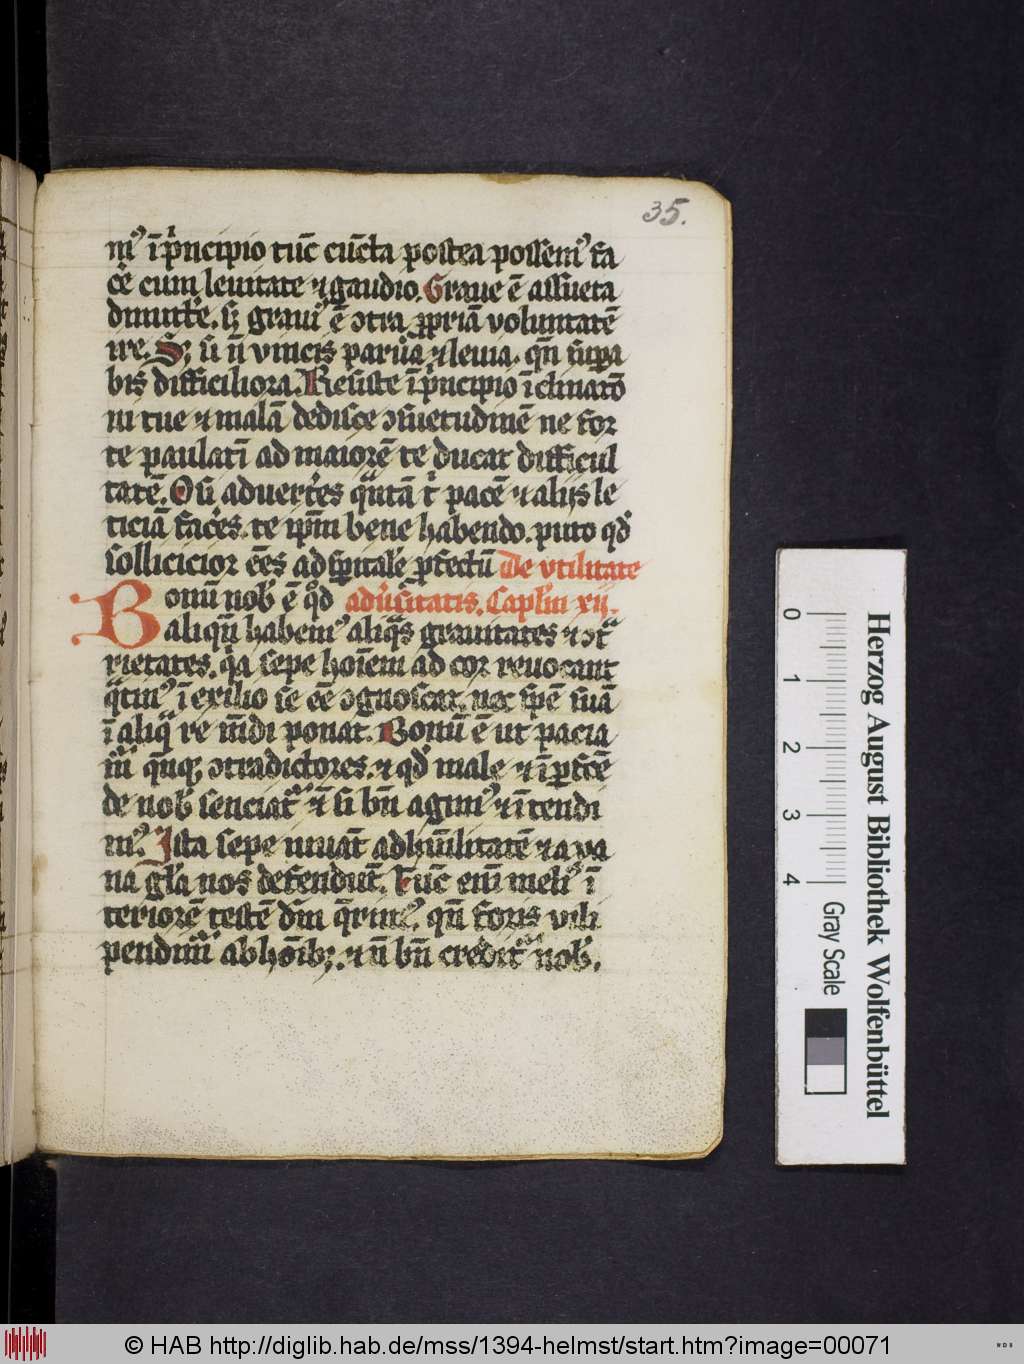 35.
m⁹ ī p̄ncipio tūc cūcta postea possem⁹ fa
cē cum leuitate ⁊ gaudio. Graue ē assueta
dimitt'e. sꝫ graui⁹ ē ↄtra ꝓpriā voluntatē
ire. Sꝫ si n̄ vincis parua ⁊ leuia. qn̄ supa
bis difficiliora. Resiste ī p̄ncipio īclinatō
ni tue ⁊ malā dedisce ↄsuetudinē ne for
te paulatī ad maiorē te ducat difficul
tatē. O si aduert'es q̄ntā t' pacē ⁊ alijs le
ticiā fac'es. te ip̄m bene habendo. puto qd'
sollicicior eēs ad sp̄ualē ꝓfectū De vtilitate
Bonū nob' ē qd' adu'sitatis. Capl'm xij.
aliqn̄ habem⁹ aliq̄s grauitates ⁊ ↄt̄
rietates. q'a sepe hoīem ad cor reuocant
q̄tin⁹ ī exilio se eē ↄgnoscat. nec spē suā
ī aliq̄ re mūdi ponat. Bonū ē ut pacia
m̄ q̄nqꝫ ↄtradictores. ⁊ qd' male ⁊ īꝑfcē
de nob' senciat̄ ⁊̄ si bn̄ agim⁹ ⁊ ītendi
m⁹. Ista sepe iuuāt ad hūilitatē ⁊ a va
na gl'a nos defendūt. Tūc enī meli⁹ ī
teriorē testē dm̄ q̄rim⁹. qn̄ foris vili
pendim̄ ab hoībꝫ. ⁊ n̄ bn̄ credit̄ nob'.
Herzog August Bibliothek Wolfenbüttel
0 1 2 3 4 Gray Scale
© HAB http://diglib.hab.de/mss/1394-helmst/start.htm?image=00071